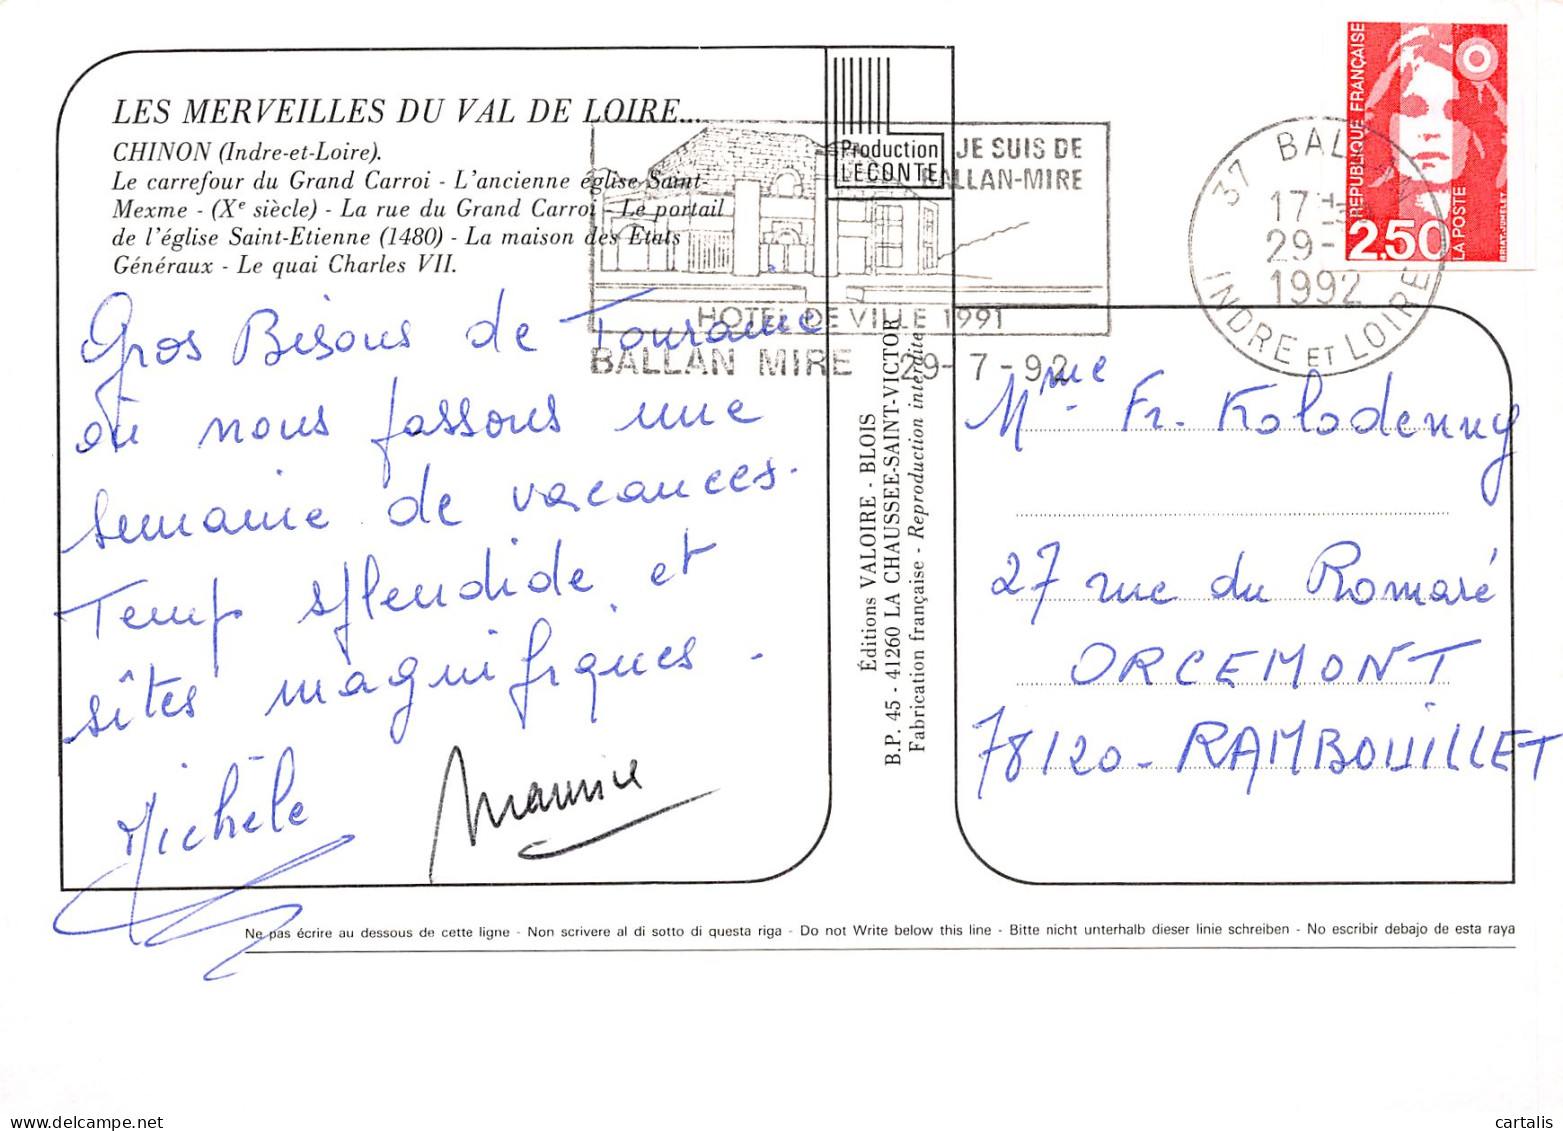 LES MERVEILLES DU VAL DE LOIRE...
CHINON (Indre-et-Loire).
Le carrefour du Grand Carroi - L'ancienne église Saint-
Mexme - (Xe siècle) - La rue du Grand Carroi - Le portail
de l'église Saint-Etienne (1480) - La maison des Etats
Généraux - Le quai Charles VII.
Production
LECONTE
JE SUIS DE
BALLAN-MIRE
HOTEL DE VILLE 1991
BALLAN MIRE 29-7-92
37 BAL
17
29-
1992
INDRE ET LOIRE
REPUBLIQUE FRANÇAISE
2.50
LA POSTE
BRIAT-JUMELET
Gros Bisous de Touraine
où nous passons une
semaine de vacances.
Temps splendide et
sîtes magnifiques.
Michèle
Maurice
Éditions VALOIRE - BLOIS
B.P. 45 - 41260 LA CHAUSSEE-SAINT-VICTOR
Fabrication française - Reproduction interdite
Mme Fr. Kolodenny
27 rue du Romaré
ORCEMONT
78120 - RAMBOUILLET
Ne pas écrire au dessous de cette ligne - Non scrivere al di sotto di questa riga - Do not Write below this line - Bitte nicht unterhalb dieser linie schreiben - No escribir debajo de esta raya
cartalis